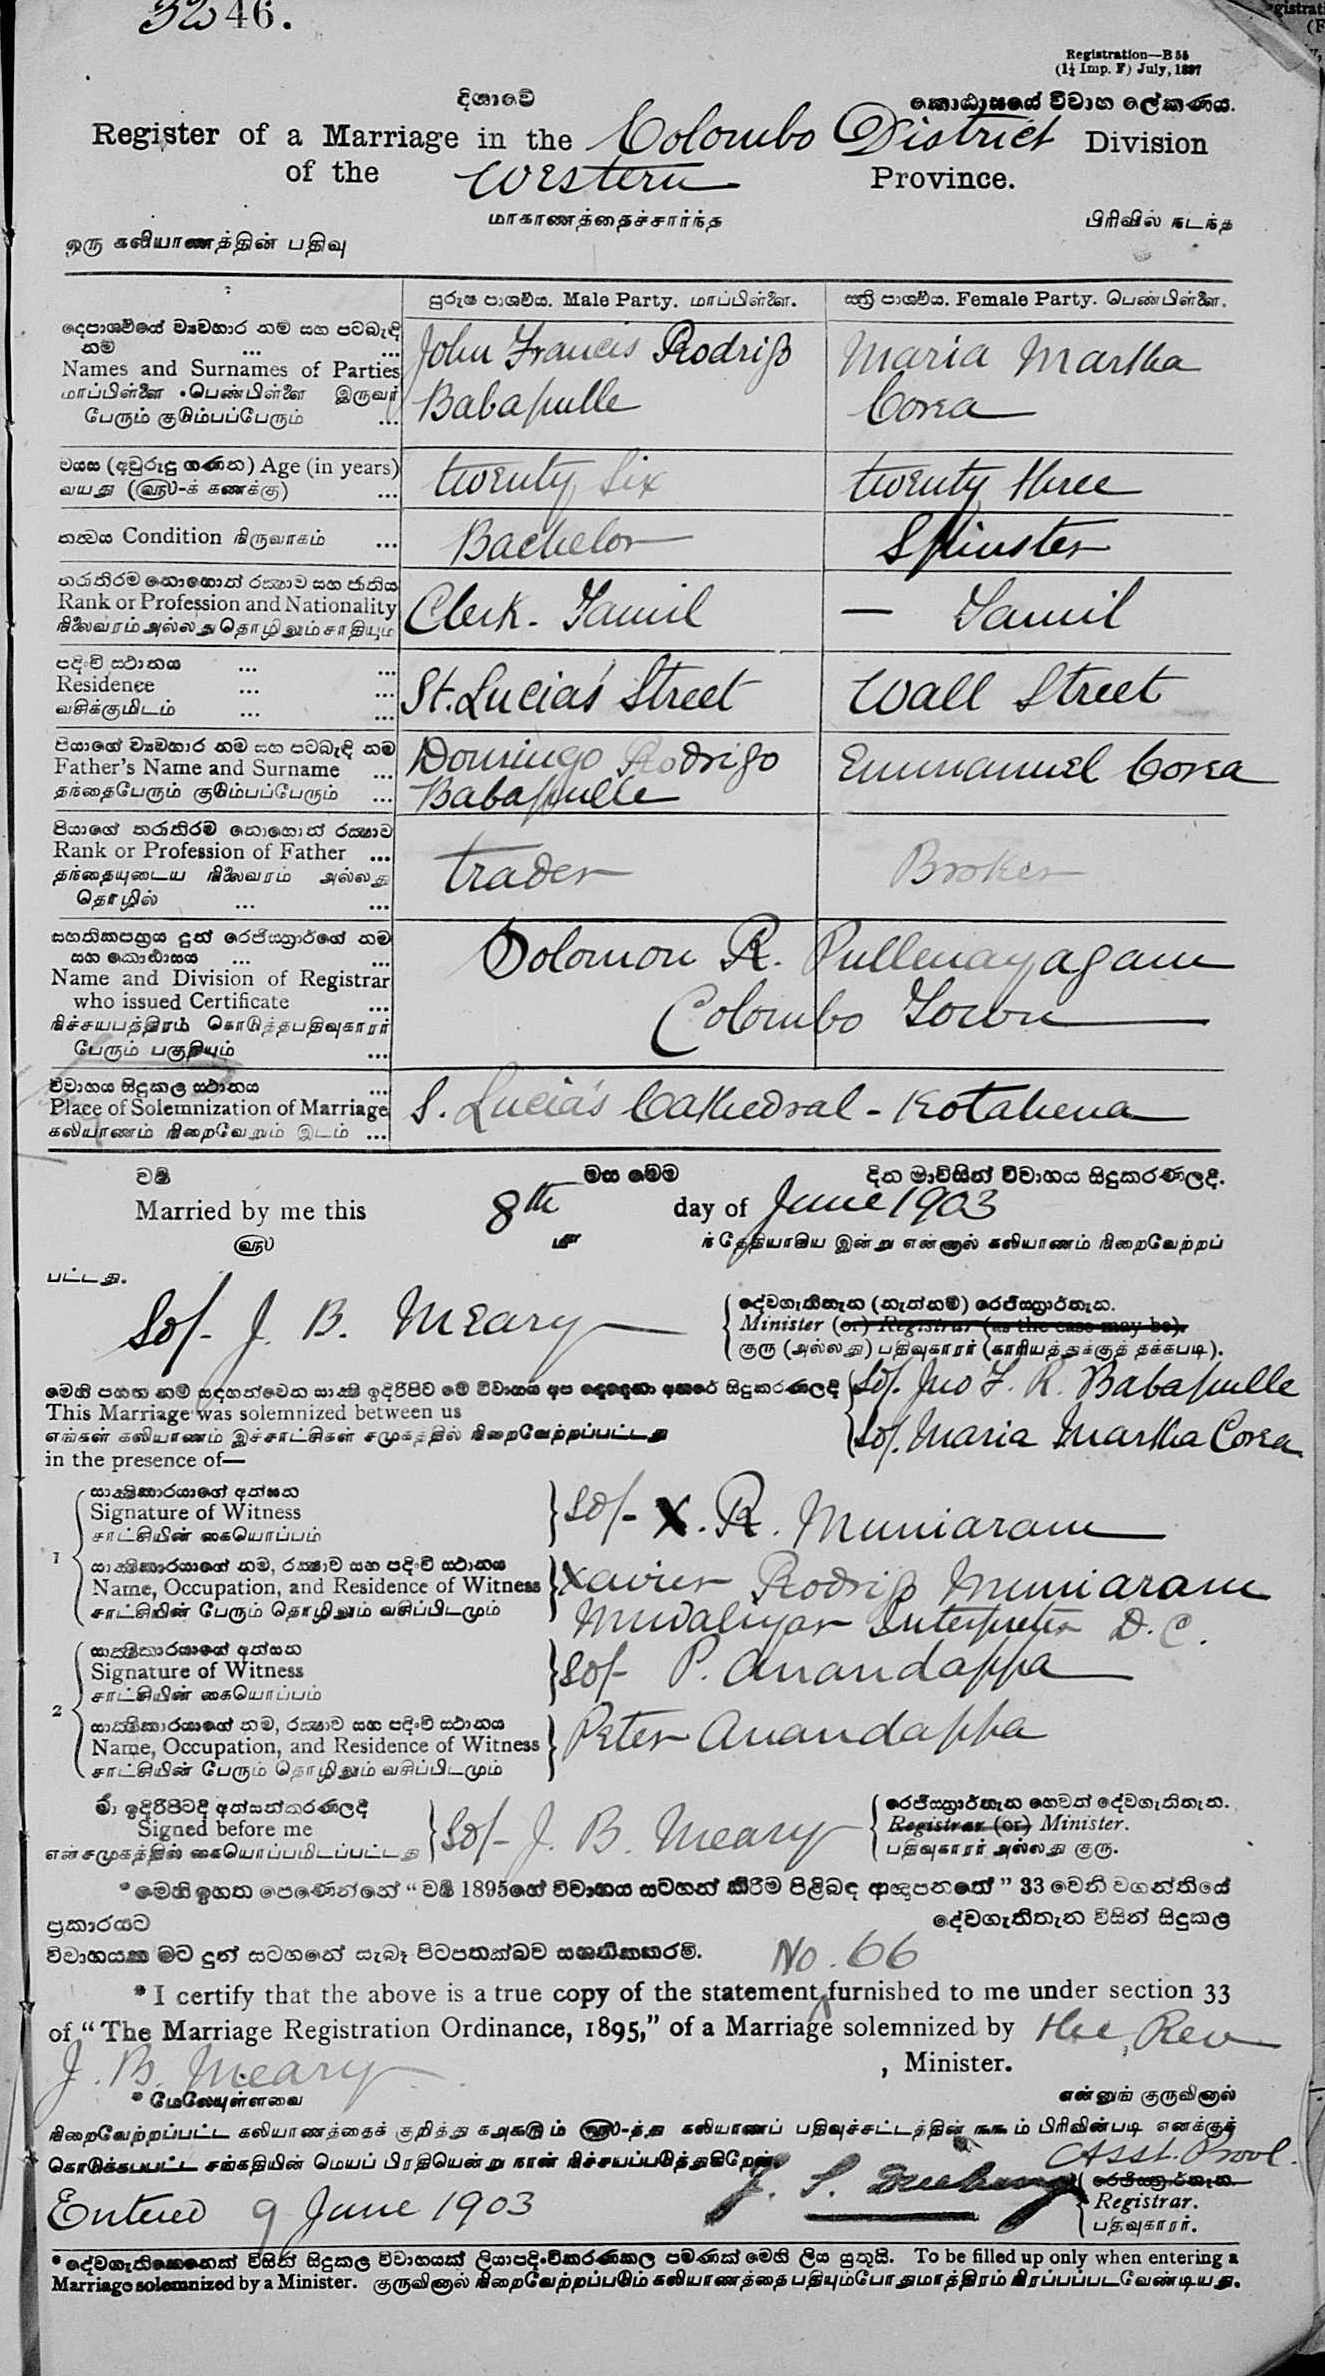 3246.
Registration—B 55
(1½ Imp. F) July, 1897
දිශාවේ කොඨාසයේ විවාහ ලේකණය.
Register of a Marriage in the Colombo District Division
of the Western Province.
மாகாணத்தைச்சார்ந்த பிரிவில் நடந்த
ஒரு கலியாணத்தின் பதிவு
පුරුෂ පාශ්වීය. Male Party. மாப்பிள்ளை. ස්ත්‍රි පාශ්වීය. Female Party. பெண்பிள்ளை.
දෙපාශ්වීයේ ව්‍යවහාර නම සහ පටබැඳි
නම ... ...
Names and Surnames of Parties John Francis Rodrigo Maria Martha
மாப்பிள்ளை பெண்பிள்ளை இருவர்
பேரும் குடும்பப்பேரும் ... Babapulle Corea
වයස (අවුරුදු ගණන) Age (in years) twenty six twenty three
வயது (வரு)-க் கணக்கு) ...
තත්වය Condition நிருவாகம் ... Bachelor Spinster
තරාතිරම නොහොත් රක්‍ෂාව සහ ජාතිය
Rank or Profession and Nationality Clerk - Tamil — Tamil
நிலைவரம் அல்லது தொழிலும் சாதியும்
පදිංචි ස්ථානය ... ...
Residence ... ... St. Lucia's Street Wall Street
வசிக்குமிடம் ... ...
පියාගේ ව්‍යවහාර නම සහ පටබැඳි නම
Father's Name and Surname ... Domingo Rodrigo Emmanuel Corea
தந்தைபேரும் குடும்பப்பேரும் ... Babapulle
පියාගේ තරාතිරම නොහොත් රක්‍ෂාව
Rank or Profession of Father ... trader Broker
தந்தையுடைய நிலைவரம் அல்லது
தொழில் ... ...
සහතිකපත්‍රය දුන් රෙජිස්ත්‍රාර්ගේ නම
සහ කොඨාසය ... ...
Name and Division of Registrar Solomon R. Pullenayagam
who issued Certificate ... Colombo Town
நிச்சயபத்திரம் கொடுத்தபதிவுகாரர்
பேரும் பகுதியும் ...
විවාහය සිදුකල ස්ථානය ...
Place of Solemnization of Marriage S. Lucia's Cathedral - Kotahena
கலியாணம் நிறைவேறும் இடம் ...
වර්‍ෂ මස මෙම දින මාවිසින් විවාහය සිදුකරණලදී.
Married by me this 8th day of June 1903
ந் தேதியாகிய இன்று என்னால் கலியாணம் நிறைவேற்றப்
பட்டது.
Sd/- J. B. Meary
දේවගැතිතැන (නැත්නම්) රෙජිස්ත්‍රාර්තැන.
Minister (or) Registrar (as the case may be).
குரு (அல்லது) பதிவுகாரர் (காரியத்துக்குத் தக்கபடி).
මෙහි පහත නම් සඳහන්වෙන සාක්‍ෂි ඉදිරිපිට මේ විවාහය අප දෙදෙනා අතරේ සිදුකරණලදී Sd/. Jno F. R. Babapulle
This Marriage was solemnized between us
எங்கள் கலியாணம் இச்சாட்சிகள் சமுகத்தில் நிறைவேற்றப்பட்டது Sd/. Maria Martha Corea
in the presence of—
සාක්‍ෂිකාරයාගේ අත්සන
1 Signature of Witness Sd/- X. R. Muniaram
சாட்சியின் கையொப்பம்
සාක්‍ෂිකාරයාගේ නම, රක්‍ෂාව සහ පදිංචි ස්ථානය
Name, Occupation, and Residence of Witness Xavier Rodrigo Muniaram
சாட்சியின் பேரும் தொழிலும் வசிப்பிடமும் Mudaliyar Interpreter D. C.
සාක්‍ෂිකාරයාගේ අත්සන
2 Signature of Witness Sd/- P. Anandappa
சாட்சியின் கையொப்பம்
සාක්‍ෂිකාරයාගේ නම, රක්‍ෂාව සහ පදිංචි ස්ථානය
Name, Occupation, and Residence of Witness Peter Anandappa
சாட்சியின் பேரும் தொழிலும் வசிப்பிடமும்
මා ඉදිරිපිටදී අත්සන්කරණලදී රෙජිස්ත්‍රාර්තැන හෙවත් දේවගැතිතැන.
Signed before me Sd/- J. B. Meary Registrar (or) Minister.
என்சமுகத்தில் கையொப்பமிடப்பட்டது பதிவுகாரர் அல்லது குரு.
* මෙහි ඉහත පෙණෙන්නේ “ වර්‍ෂ 1895ගේ විවාහය සටහන් කිරීම පිළිබඳ ආඥාපනතේ ” 33 වෙනි වගන්තියේ
ප්‍රකාරයට දේවගැතිතැන විසින් සිදුකල
විවාහයක මට දුන් සටහනේ සැබෑ පිටපතක්බව සහතිකකරමි. No. 66
* I certify that the above is a true copy of the statement furnished to me under section 33
of “The Marriage Registration Ordinance, 1895,” of a Marriage solemnized by the Rev
J. B. Meary , Minister.
* மேலேயுள்ளவை என்னுங் குருவினால்
நிறைவேற்றப்பட்ட கலியாணத்தைக் குறித்து கஅகூரு ம் வரு-த்து கலியாணப் பதிவுச்சட்டத்தின் ௩௩ ம் பிரிவின்படி எனக்குக்
கொடுக்கபபட்ட சங்கதியின் மெய்ப் பிரதியென்று நான் நிச்சயப்படுத்துகிறேன். Asst. Provl.
රෙජිස්ත්‍රාර්තැන.
Entered 9 June 1903 Registrar.
பதிவுகாரர்.
* දේවගැතිකෙනෙක් විසින් සිදුකල විවාහයක් ලියාපදිංචිකරණකල පමණක් මෙහි ලිය යුතුයි. To be filled up only when entering a
Marriage solemnized by a Minister. குருவினால் நிறைவேற்றப்படும் கலியாணத்தை பதியும்போதுமாத்திரம் நிரப்பப்படவேண்டியது.